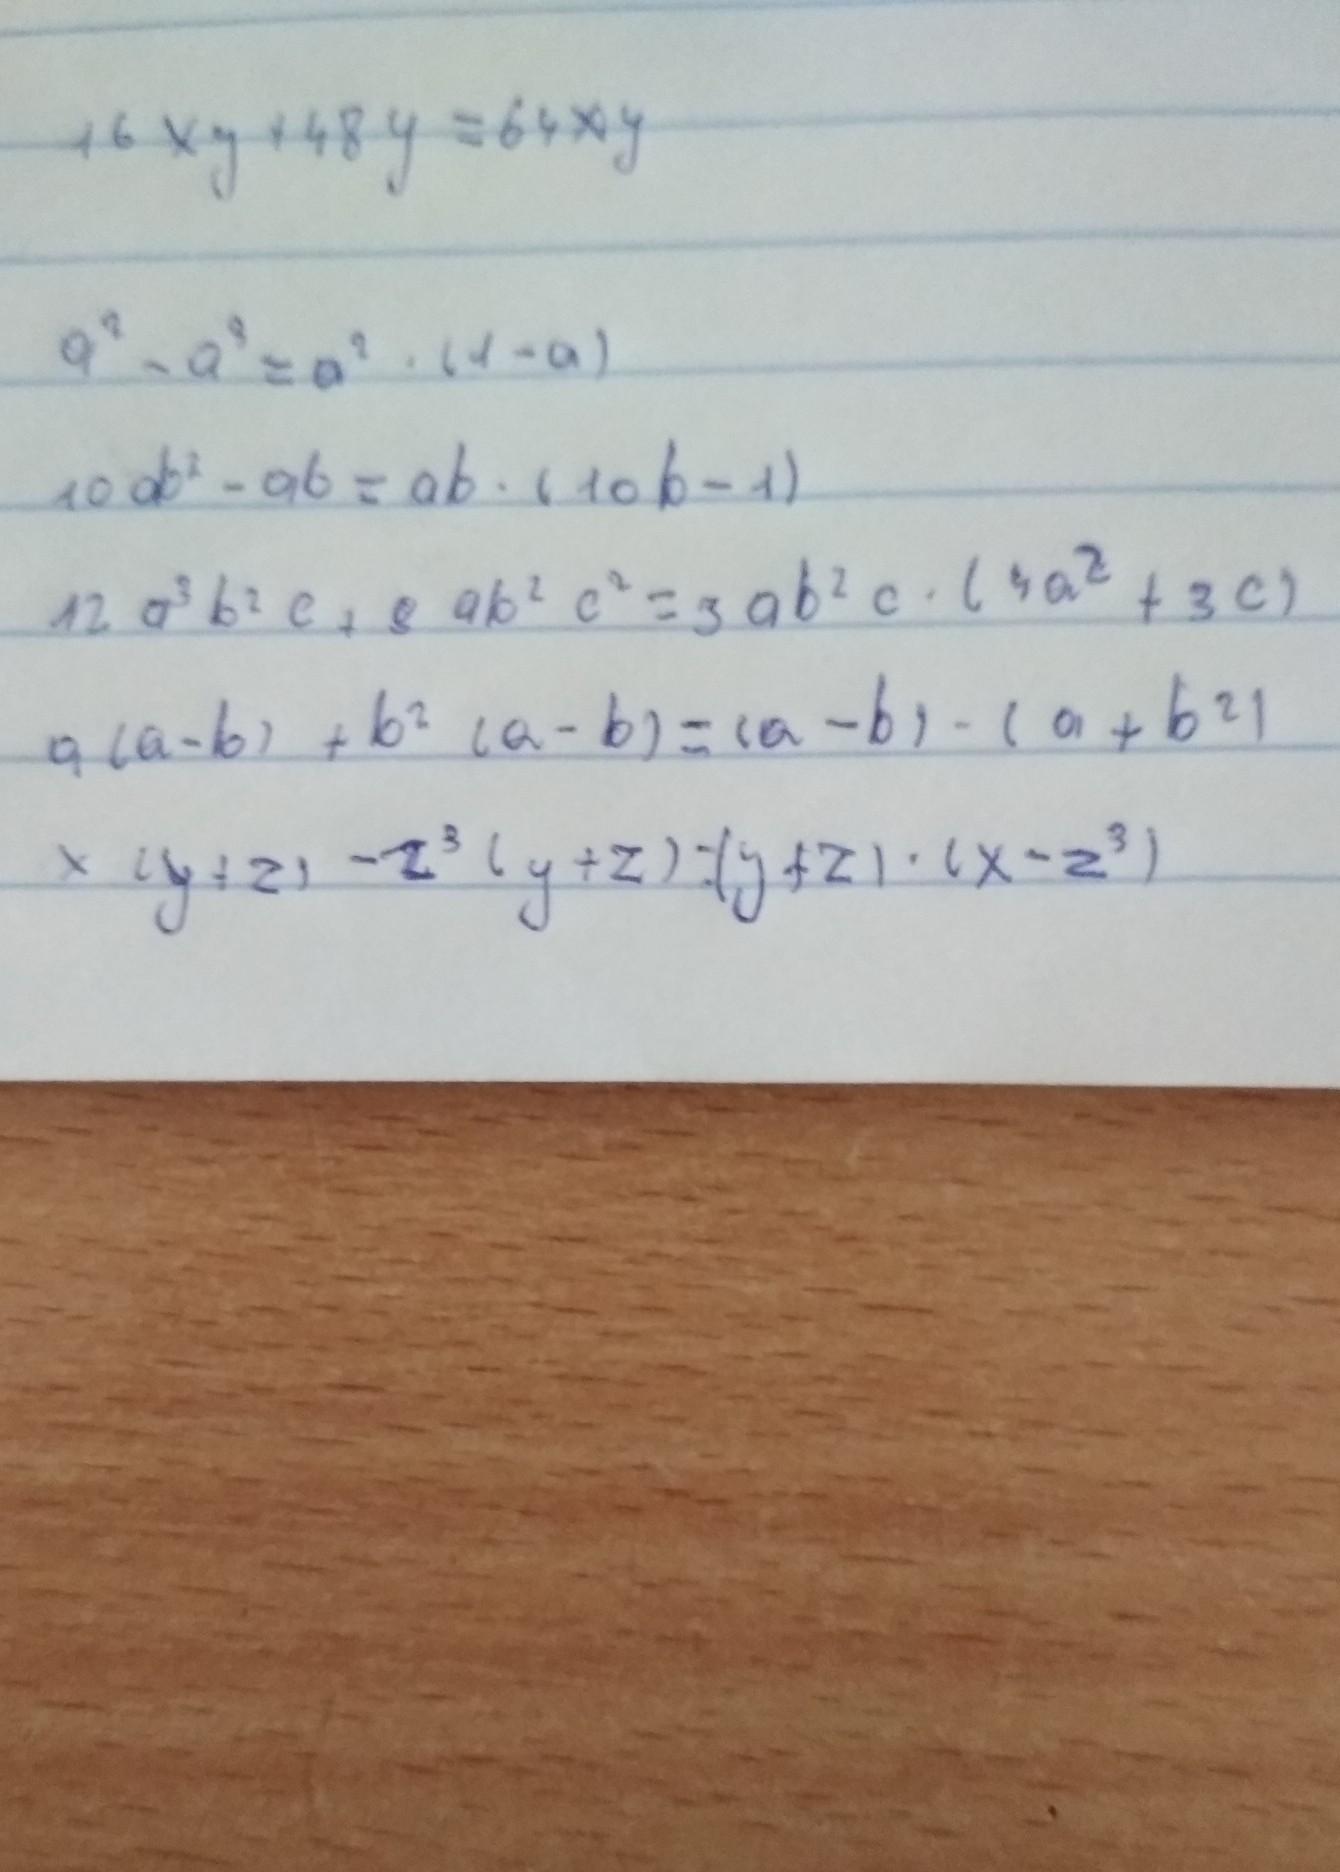 16xy+48y=64xy
a² - a³ = a² · (1-a)
10ab² - ab = ab · (10b-1)
12a³b²c + 9ab²c² = 3ab²c · (4a² + 3c)
a(a-b) + b²(a-b) = (a-b) · (a+b²)
x(y+z) - z³(y+z) = (y+z) · (x-z³)